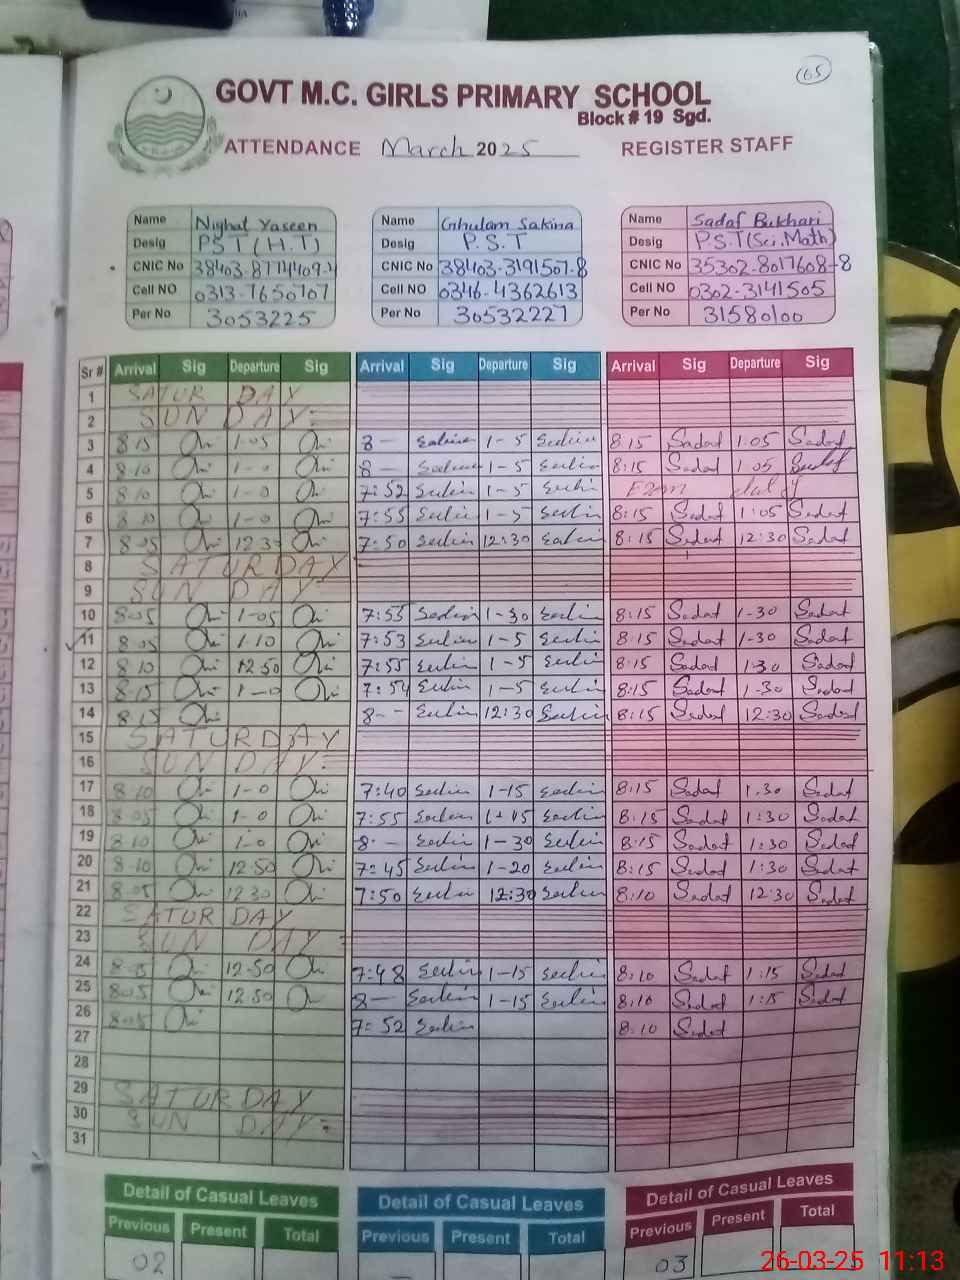 65
GOVT M.C. GIRLS PRIMARY SCHOOL
Block # 19 Sgd.
ATTENDANCE March 2025 REGISTER STAFF
Name Nighat Yaseen Name Ghulam Sakina Name Sadaf Bukhari
Desig P.S.T (H.T) Desig P.S.T Desig P.S.T (Sci, Math)
CNIC No CNIC No 38403-3191507-8 CNIC No 35302-8017608-8
Cell NO 0313-7650707 Cell NO 0346-4362613 Cell NO 0302-3141505
Per No 3053225 Per No 30532227 Per No 31580100
Sr # Arrival Sig Departure Sig Arrival Sig Departure Sig Arrival Sig Departure Sig
1 SATUR DAY
2 SUN DAY
3 8.15 1-05 8- 1-5 8.15 Sadaf 1:05 Sadaf
4 8.10 1-0 8- 1-5 8:15 Sadaf 1.05
5 8.10 1-0 7:52 1-5 Exam duty
6 8.10 1-0 7:55 1-5 8:15 Sadaf 1:05 Sadaf
7 8.05 12.30 7:50 12:30 8:15 Sadaf 12:30 Sadaf
8 SATURDAY
9 SUN DAY
10 8.05 1-05 7:55 1-30 8:15 Sadaf 1-30 Sadaf
11 8.05 1-10 7:53 1-5 8:15 Sadaf 1-30 Sadaf
12 8.10 12.50 7:55 1-5 8:15 Sadaf 1.30 Sadaf
13 8.15 1-0 7:54 1-5 8:15 Sadaf 1.30 Sadaf
14 8.15 8-- 12:30 8:15 Sadaf 12:30 Sadaf
15 SATURDAY
16 SUN DAY
17 8.10 1-0 7:40 1-15 8:15 Sadaf 1.30 Sadaf
18 8.05 1-0 7:55 1-15 8:15 Sadaf 1:30 Sadaf
19 8.10 1-0 8- 1-30 8:15 Sadaf 1:30 Sadaf
20 8.10 12.50 7:45 1-20 8:15 Sadaf 1:30 Sadaf
21 8.05 12.30 7:50 12:30 8:10 Sadaf 12:30 Sadaf
22 SATUR DAY
23 SUN DAY
24 12.50 7:48 1-15 8:10 Sadaf 1:15 Sadaf
25 8.05 12.50 8- 1-15 8:10 Sadaf 1:15 Sadaf
26 8.05 7:52 8:10 Sadaf
27
28
29 SATURDAY
30 SUN DAY
31
Detail of Casual Leaves Detail of Casual Leaves Detail of Casual Leaves
Previous Present Total Previous Present Total Previous Present Total
02 - 03
26-03-25 11:13